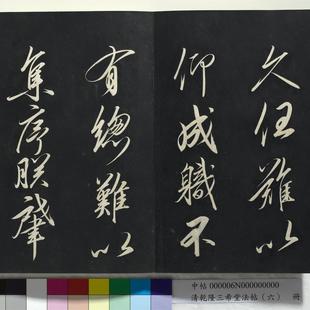 久任難以
仰成職不
有總難以
集序朕肇
中帖 000006N000000000
清乾隆三希堂法帖(六) 冊